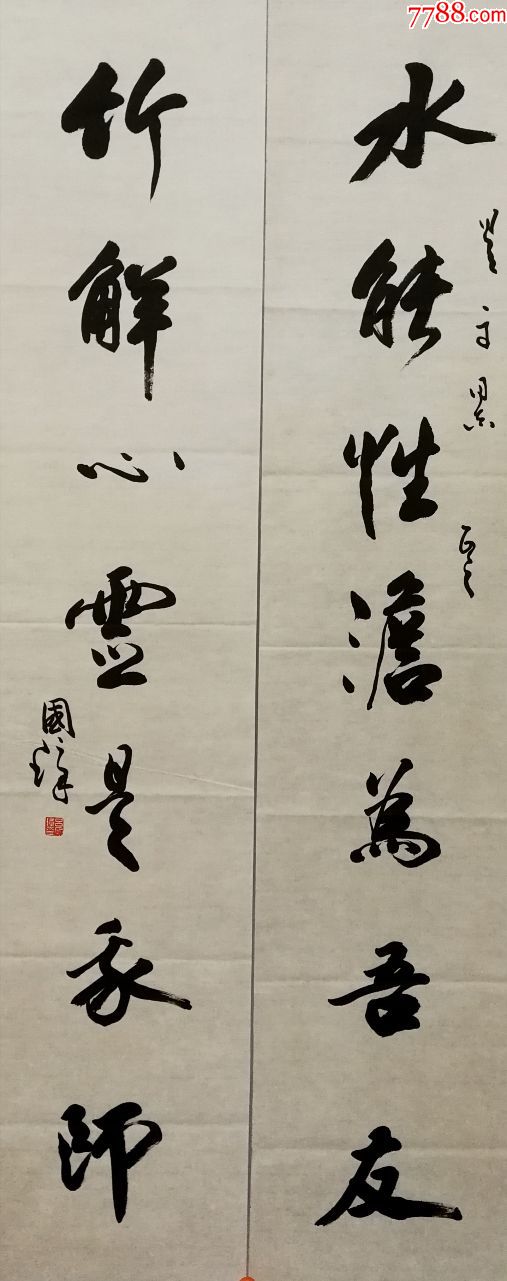 7788.com
水能性澹為吾友
正之
竹解心霊是我師
國璋